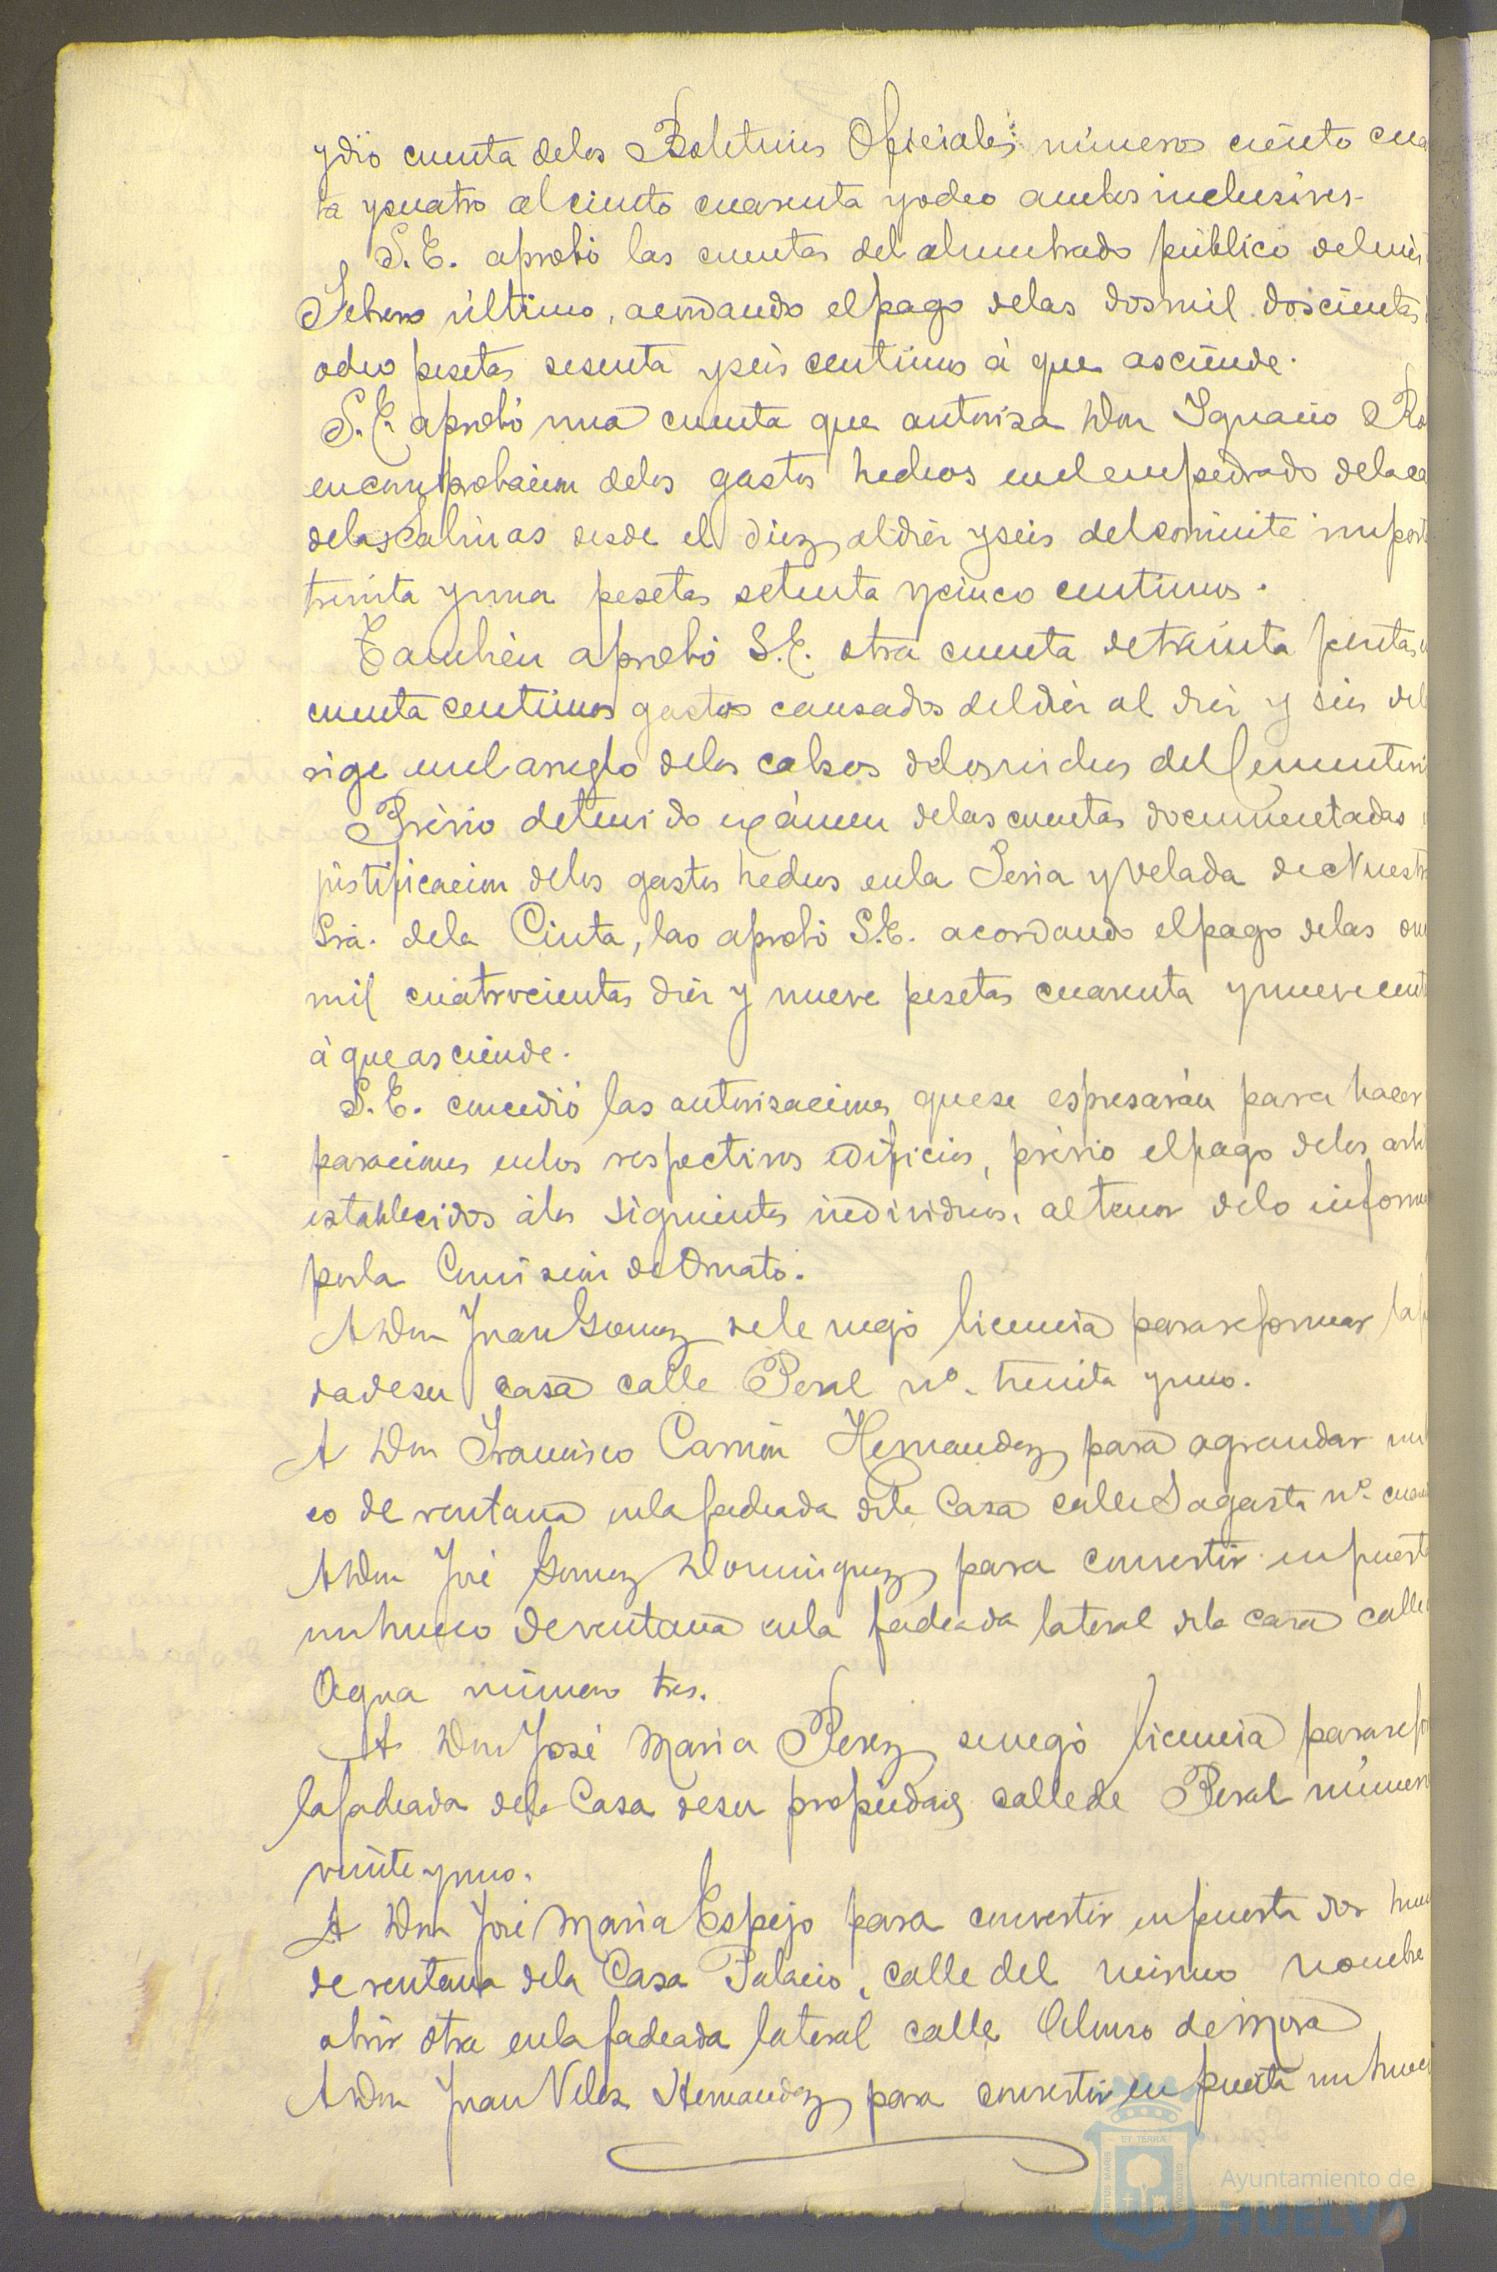 y dió cuenta delos Boletines Oficiales números ciento cua
ta y cuatro al ciento cuarenta y ocho ambos inclusives.
S. E. aprobó las cuentas del alumbrado público del mes
Febrero último, acordando el pago delas dos mil doscientas
ocho pesetas sesenta y seis centimos á que asciende.
S. E. aprobó una cuenta que autoriza Don Ignacio Ro
en comprobacion delos gastos hechos en el empedrado dela ca
delas Salinas desde el diez al diez y seis del corriente import
treinta y una pesetas setenta y cinco centimos.
Tambien aprobó S. E. otra cuenta de treinta pesetas
cuenta centimos gastos causados del diez al diez y seis del
rige en el arreglo delos delos nichos del Cementeri
Prévio detenido exámen delas cuentas documentadas
justificacion delos gastos hechos enla Feria y Velada de Nuest
Sra. dela Cinta, las aprobó S. E. acordando el pago delas on
mil cuatrocientas diez y nueve pesetas cuarenta y nueve cent
á que asciende.
S. E. concedió las autorisaciones que se espresarán para hacer
paraciones enlos respectivos edificios, prévio el pago delos arbi
establecidos álos siguientes individuos, al tenor delo inform
porla Comision de Ornato.
A Don Juan Gomez sele negó licencia para reformar la f
da desu casa calle Peral nº. treinta y uno.
A Don Francisco Carrion Hernandez para agrandar un
co de ventana enla fachada dela Casa calle Sagasta nº. cua
A Don José Gomez Dominguez para convertir en puerta
un hueco de ventana enla fachada lateral dela casa calle
Agua número tres.
A Don José Maria Perez se negó licencia para refo
la fachada dela Casa desu propiedad calle de Peral número
veinte y uno.
A Don José Maria Espejo para convertir en puerta dos hue
de ventana dela Casa Palacio, calle del mismo nombre
abrir otra enla fachada lateral calle Alonso de Mora
A Don Juan Velez Hernandez para convertir en puerta un hueco
Ayuntamiento de
HUELVA